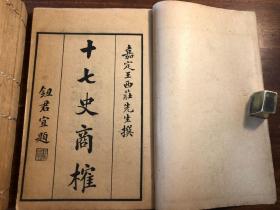 嘉定王西莊先生撰
十七史商榷
鈕君宜題